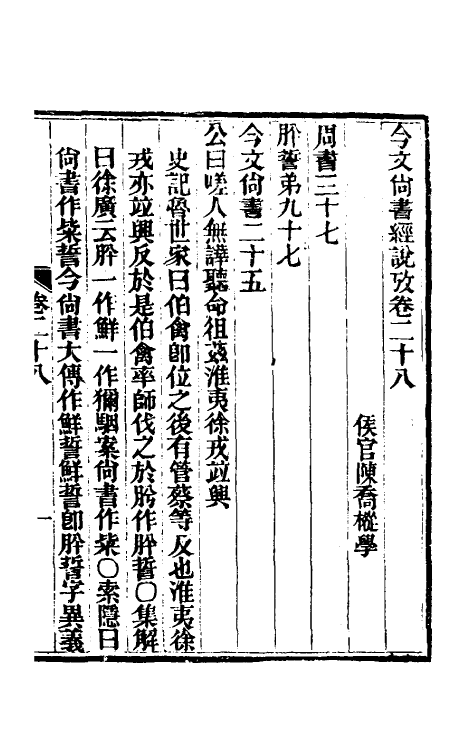 今文尚書經說攷卷二十八
侯官陳喬樅學
周書二十七
肸誓弟九十七
今文尚書二十五
公曰嗟人無譁聽命徂茲淮夷徐戎竝興
史記魯世家曰伯禽卽位之後有管蔡等反也淮夷徐
戎亦竝興反於是伯禽率師伐之於肸作肸誓○集解
曰徐廣云肸一作鮮一作獮駰案尚書作柴○索隱曰
尚書作柴誓今尚書大傳作鮮誓鮮誓卽肸誓字異義
卷二十八
一